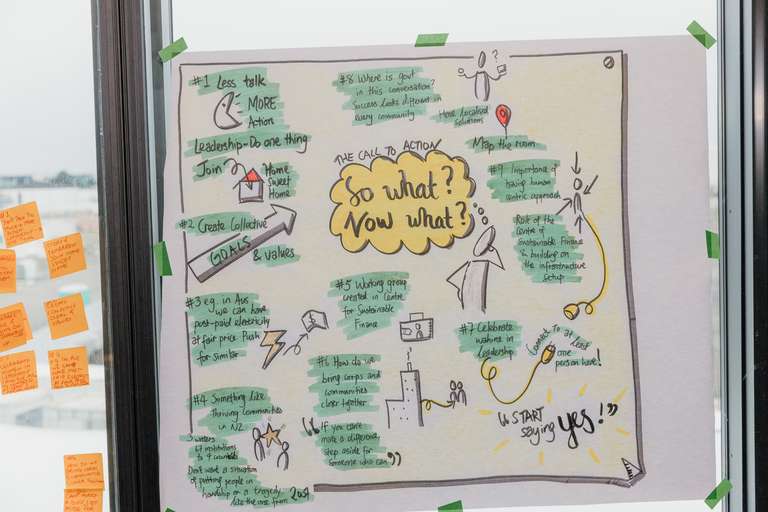 #1 Less talk
MORE
Action
Leadership - Do one thing
Join
Home
Sweet
Home
#2 Create Collective
GOALS & values
#3 e.g. in Aus
we can have
post-paid electricity
at fair price. Push
for similar
#4 Something like
Thriving Communities
in NZ
3 waters
67 institutions
to 4 
Don't want a situation
of putting people in
hardship or a tragedy
like the one from 
THE CALL TO ACTION
So what?
Now what?
#5 Working group
created in Centre
for Sustainable
Finance
#6 How do we
bring corps and
communities
closer together
"If you can't
make a difference,
step aside for
someone who can"
#8 Where is govt
in this conversation?
Success looks different in
every community
Have localised
solutions
Map the room
#9 Importance of
having human
centric approach
Part of the
Centre of
Sustainable Finance
& building on
the infrastructure
setup
#7 Celebrate
wahine in
leadership
Connect to at least
one
person here!
"START
saying yes!"